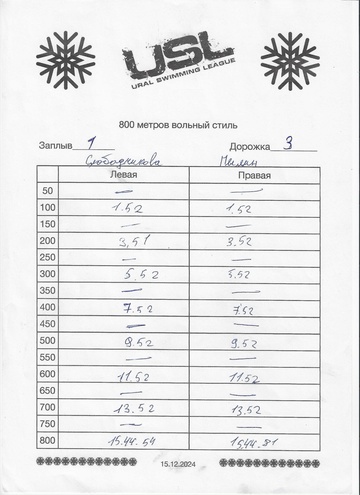 USL
URAL SWIMMING LEAGUE
800 метров вольный стиль
Заплыв 1 Дорожка 3
Слободчикова Милин
Левая Правая
50 — —
100 1.52 1.52
150 — —
200 3,51 3.52
250 — —
300 5.52 5.52
350 — —
400 7.52 7.52
450 — —
500 9.52 9.52
550 — —
600 11.52 11.52
650 — —
700 13.52 13.52
750 — —
800 15.44.54 15.44.81
15.12.2024